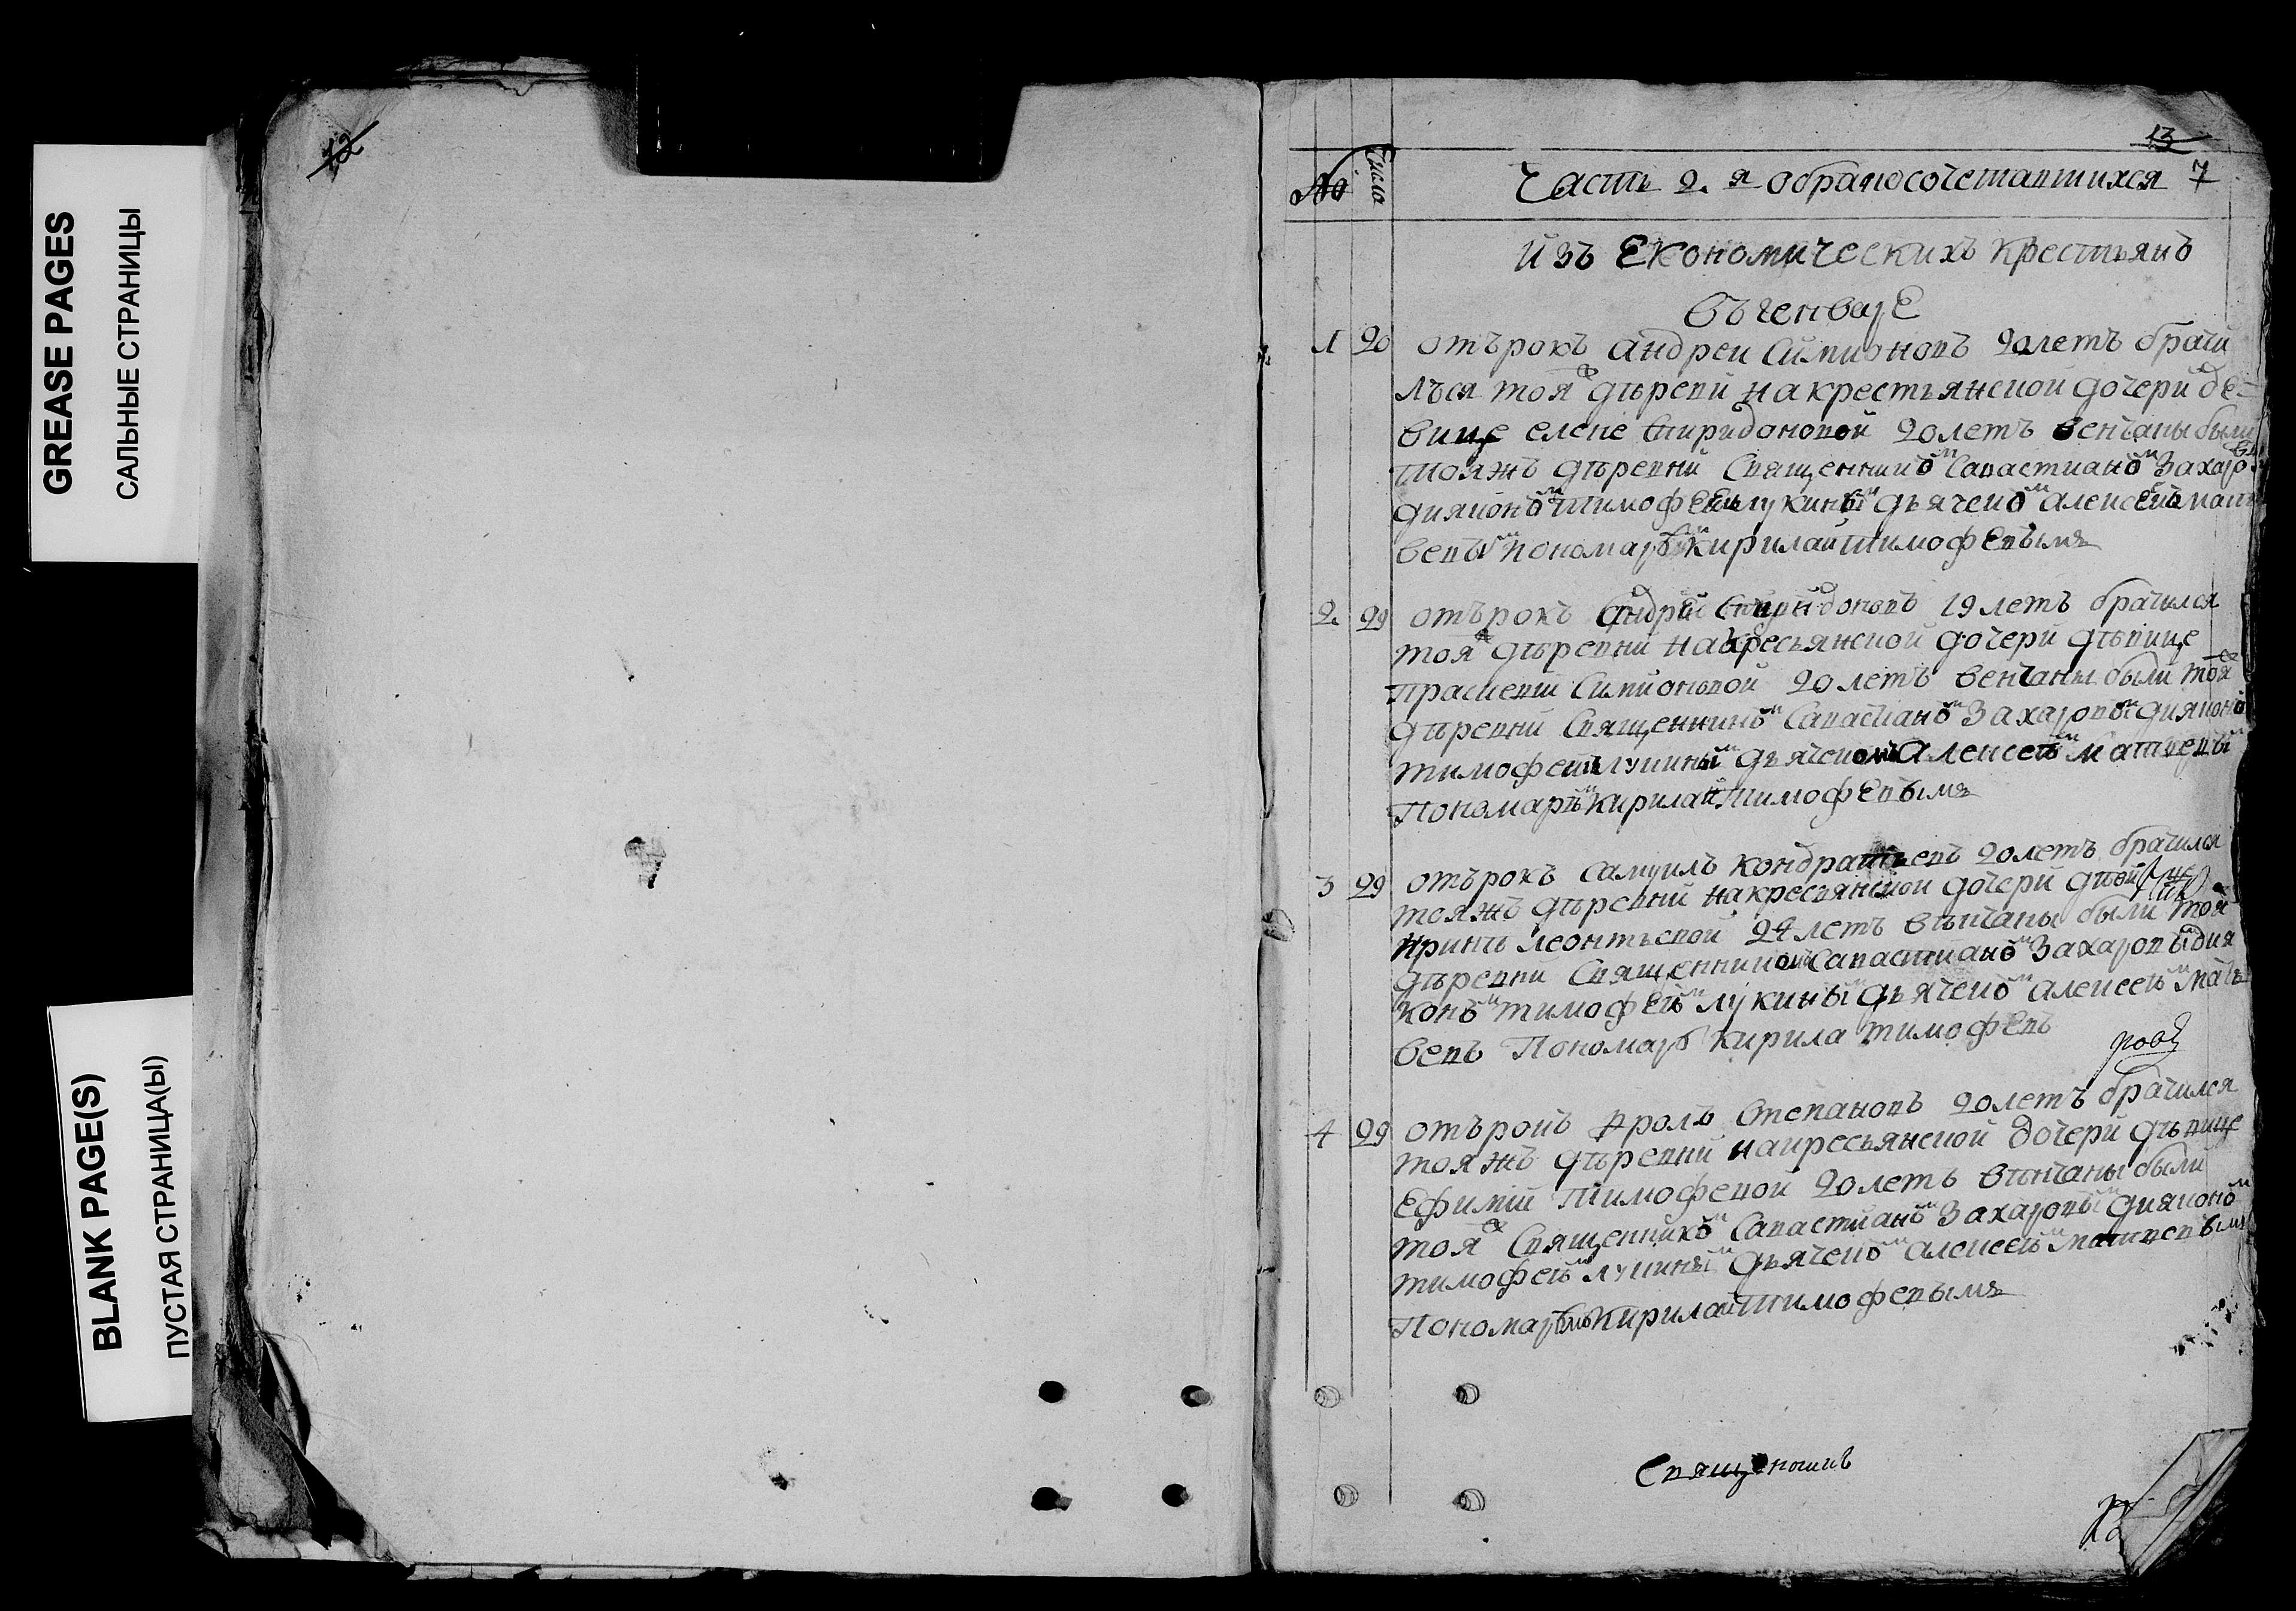 GREASE PAGES
САЛЬНЫЕ СТРАНИЦЫ
BLANK PAGE(S)
ПУСТАЯ СТРАНИЦА(Ы)
12
13
№ Число Часть 2.я обракосочетавшихся 7
изъ Економическихъ крестьянъ
въ генваре
1 20 отърокъ андреи Симионовъ 20 летъ брачи
лъся тояж дъревни на крестьянской дочери де-
вице елене Спиридоновой 20 летъ венчаны были
тояжъ дъревни Священникомъ Савастианомъ Захаровым
дияконом тимофеемъ лукиным дьячеком алексеемъ мат
вевым пономарем кирилай тимофевымъ
2. 29 отърокъ андрей Спиридоновъ 19 летъ брачился
тояж дъревни на кресьянской дочери дъвице
Прасковии Симионовой 20 летъ венчаны были тояж
дъревни Священником Савастианом Захаровым дияконом
тимофеемъ лукиным дьячекомъ алексеем матвевым
Пономарем Кирилай тимофевымъ
3 29 отърокъ самуилъ кондратьевъ 20 летъ брачился
тояжъ дъревни на кресьянской дочери
Ирине леонтьевой 24 летъ вънчаны были тояж
дъревни Священникомъ Савастианом Захаровым дия
коном тимофеем лукиным дьячеком алексеем мать
вевъ Пономарь Кирила тимофевъ
4 29 отърокъ Фролъ Степановъ 20 летъ брачился
тояжъ дъревни на кресьянской дочери дъвице
Ефимии Тимофевой 20 летъ вънчаны были
тояж Священником Савастианом Захаровым дияконом
тимофеем лукиным дьячеком алексеем матвевымъ
Пономаремъ Кирилай Тимофевымъ
Священникъ